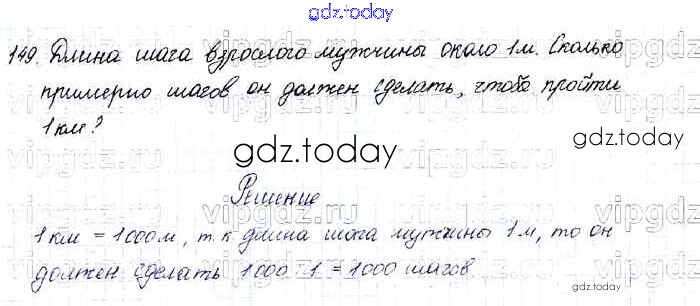 gdz.today
149. Длина шага взрослого мужчины около 1 м. Сколько
примерно шагов он должен сделать, чтобы пройти
1 км?
gdz.today
gdz.today
Решение
1 км = 1000 м, т.к длина шага мужчины 1 м, то он
должен сделать 1000 : 1 = 1000 шагов
gdz.today